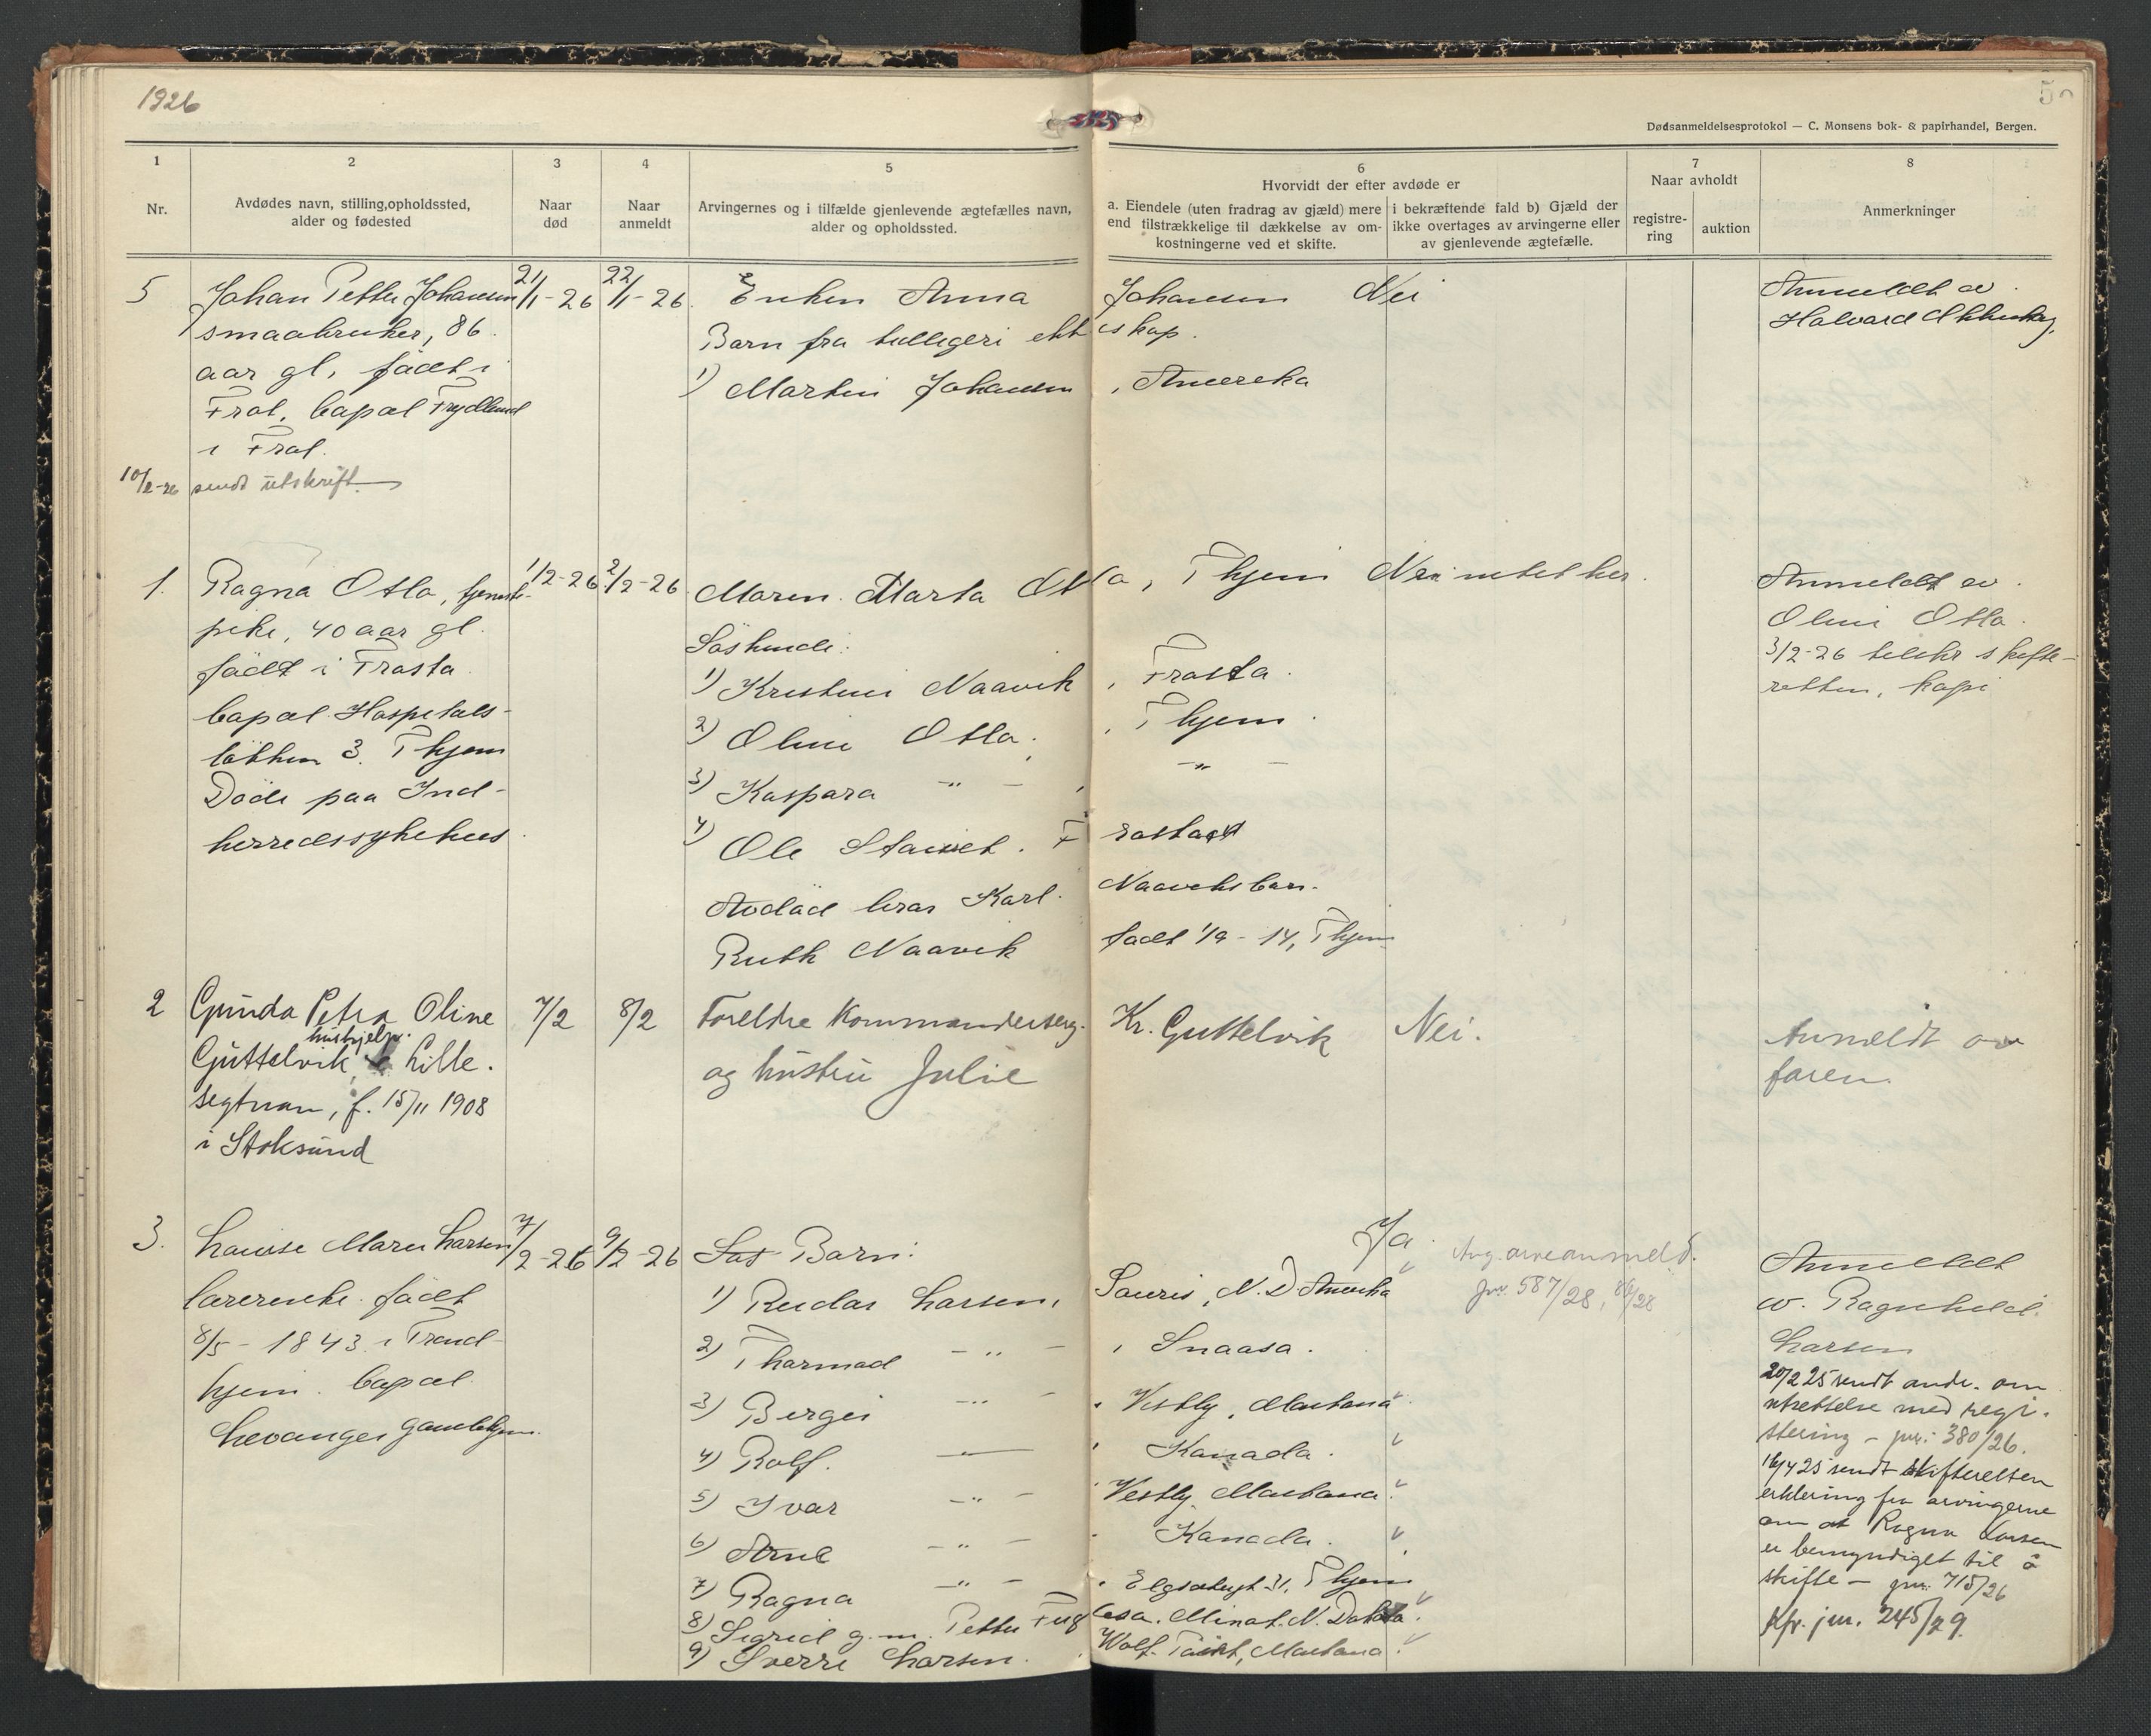 1926
50
Dødsanmeldelsesprotokol — C. Monsens bok- & papirhandel, Bergen.
1
Nr.
2
Avdødes navn, stilling, opholdssted,
alder og fødested
3
Naar
død
4
Naar
anmeldt
5
Arvingernes og i tilfælde gjenlevende ægtefælles navn,
alder og opholdssted.
6
Hvorvidt der efter avdøde er
a. Eiendele (uten fradrag av gjæld) mere
end tilstrækkelige til dækkelse av om-
kostningerne ved et skifte.
i bekræftende fald b) Gjæld der
ikke overtages av arvingerne eller
av gjenlevende ægtefælle.
7
Naar avholdt
registre-
ring
auktion
8
Anmerkninger
5
Johan Petter Johansen
smaabruker, 86
aar gl, født i
Frol, bopæl Frydlund
i Frol.
10/2-26 sendt utskrift.
21/1-26
22/1-26.
Enken Anna Johansen
Barn fra tidligere ekteskap.
1) Martin Johansen, Amereka
Nei
Anmeldt av
Halvard
1.
Ragna Otlo, tjeneste-
pike, 40 aar gl.
født i Frosta
bopæl Hospitals-
løkken 3. Thjem
Døde paa Ind-
herredssykehus.
1/2-26
2/2-26
Maren Marta Otlo, Thjem
Søskende:
1) Kristine Naavik, Frosta.
2) Oline Otlo, Thjem.
3) Kaspara -"- , -"-
4) Ole . Frosta
Avdød bror Karl Naaviks barn.
Ruth Naavik født 1/9-14, Thjem
Nei intet her.
Anmeldt av
Oline Otlo.
3/2-26 telefr skifte-
retten, kopi
2
Gunda Petra Oline
hushjelp.
Guttelvik, Lille.
segtnan, f. 15/11 1908
i Stoksund
7/2
8/2
Foreldre Kommanderserg. Kr. Guttelvik
og hustru Julie
Nei.
Anmeldt av
faren.
3.
Louise Marie Larsen
lærerenke. født
8/5-1843 i Trond-
hjem. bopæl
Levanger gamlehjem.
7/2-26
9/2-26
Barn:
1) Reidar Larsen, Souris, N. D Amerika
2) Thormod -"- , Snaasa.
3) Berger -"- , Vestby, Montana
4) Rolf. -"- , Kanada.
5) Ivar -"- Vestby Montana
6) Arne -"- Kanada.
7) Ragna -"- , 31, Thjem
8) Sigrid g. m. Petter Fuglesa. Minot. N. Dakota.
9) Sverre Larsen. Wolf Point, Montana
Ja.
Ang. arveanmeld.
jnr. 587/28, 86/28
Anmeldt
av. Ragnhild
Larsen
20/2 25 sendt andr. om
utsettelse med regi-
stering - jnr. 380/26.
16/4 25 sendt skifteretten
erklering fra arvingerne
om at Ragna Larsen
er bemyndiget til å
skifte - jnr. 715/26
Kfr. jnr. 245/29.